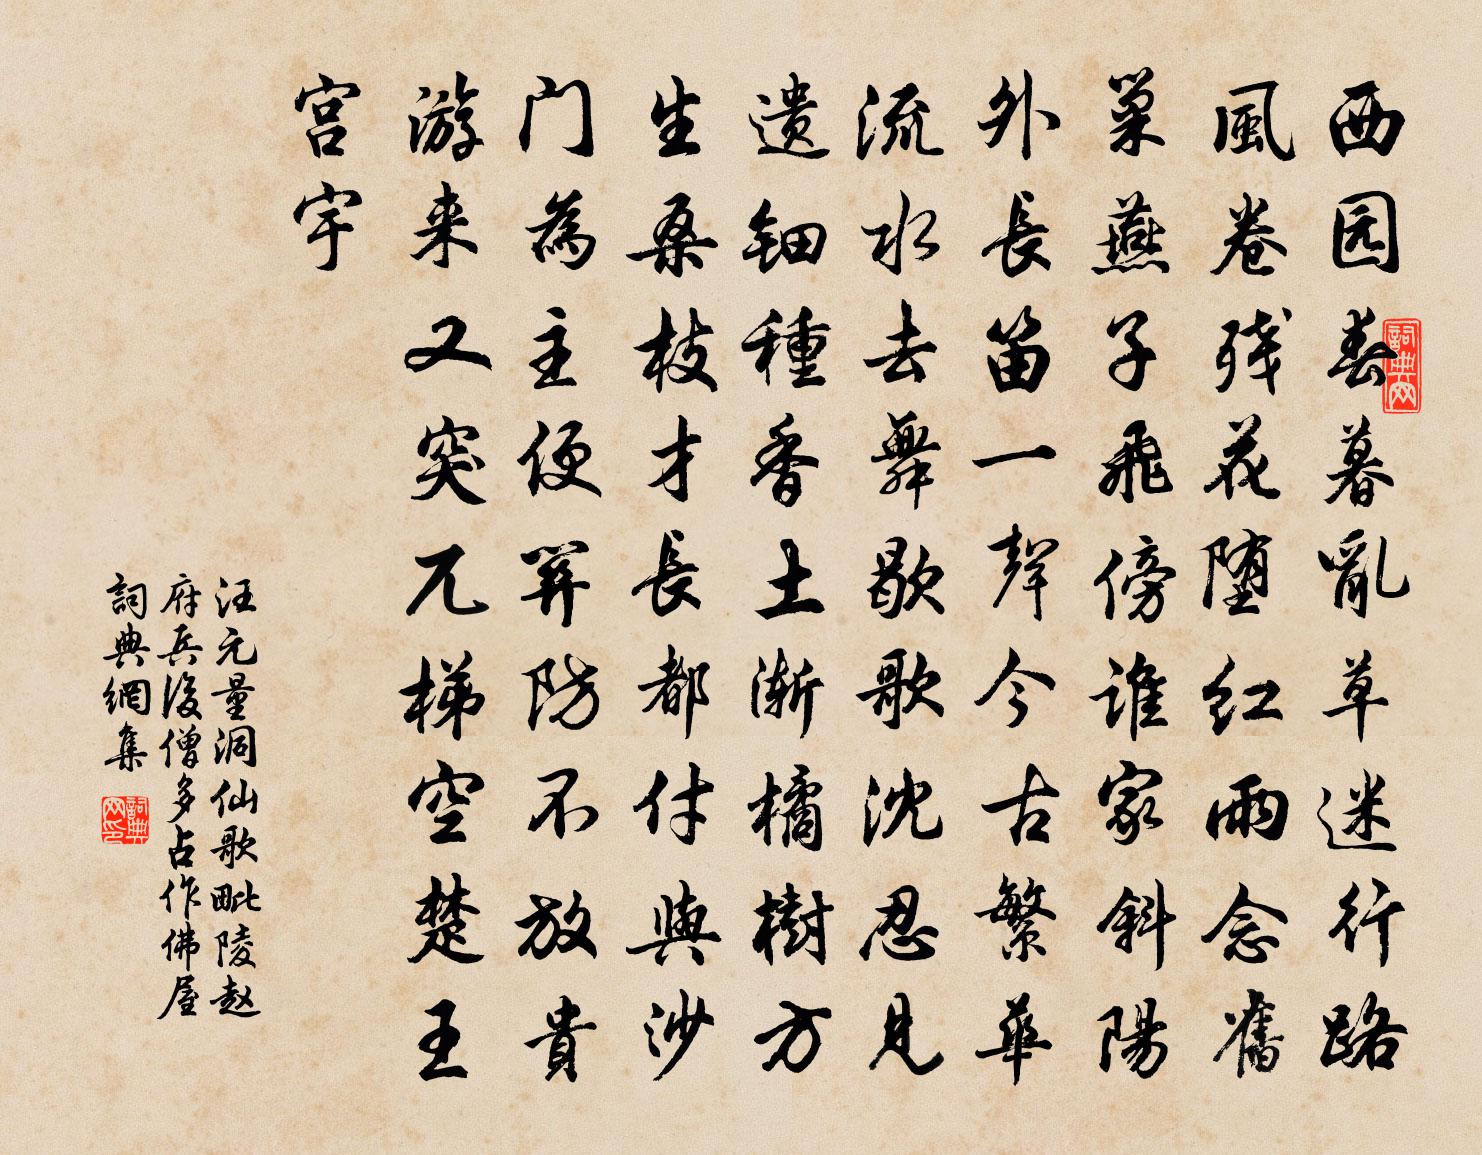 西园春暮亂草迷行路
風卷残花堕红雨念舊
巢燕子飛傍谁家斜陽
外長笛一聲今古繁華
流水去舞歇歌沈忍見
遗钿種香土漸橘樹方
生桑枝才長都付與沙
门為主便関防不放貴
游来又突兀梯空楚王
宫宇
汪元量洞仙歌毗陵赵
府兵後僧多占作佛屋
詞典網集
詞典网
詞典网印